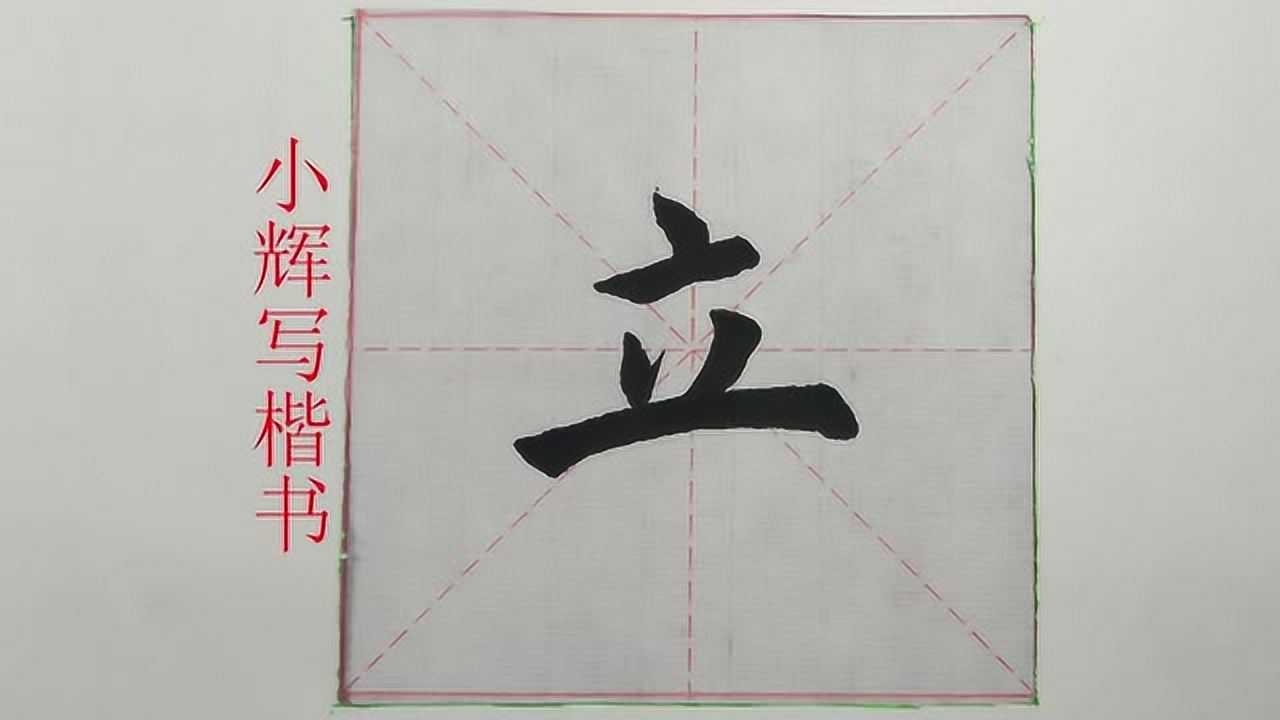 小辉写楷书
立